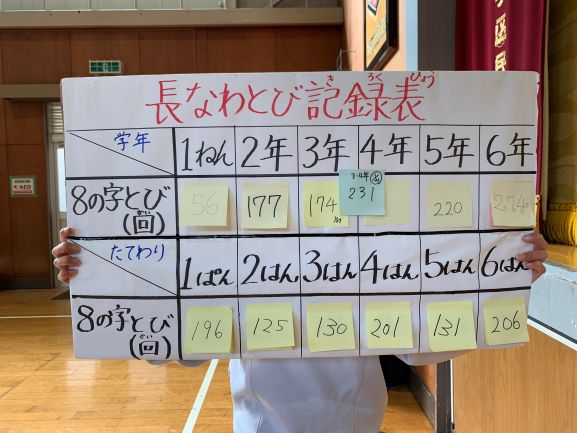 長なわとび記録表
き ろく ひょう
学年 1ねん 2年 3年 4年 5年 6年
8の字とび(回) 56 177 174 231 220 274
かい
たてわり 1ぱん 2はん 3ぱん 4はん 5はん 6ぱん
8の字とび(回) 196 125 130 201 131 206
かい
AED